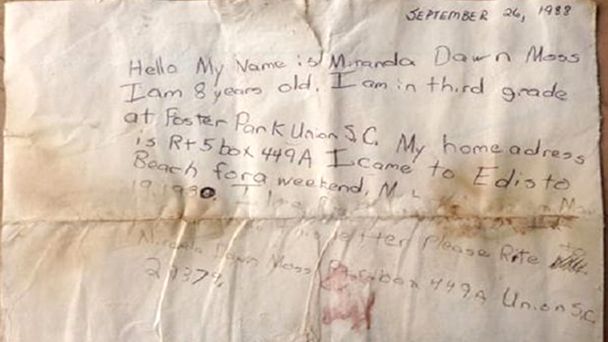 SEPTEMBER 26, 1988
Hello My Name is Miranda Dawn Moss
I am 8 years old. I am in third grade
at Foster Park Union S.C. My home adress
is Rt 5 box 449A I came to Edisto
Beach for a weekend,
19, 1980. I
letter Please Rite
Miranda Dawn Moss box 449A Union S.C.
29379,